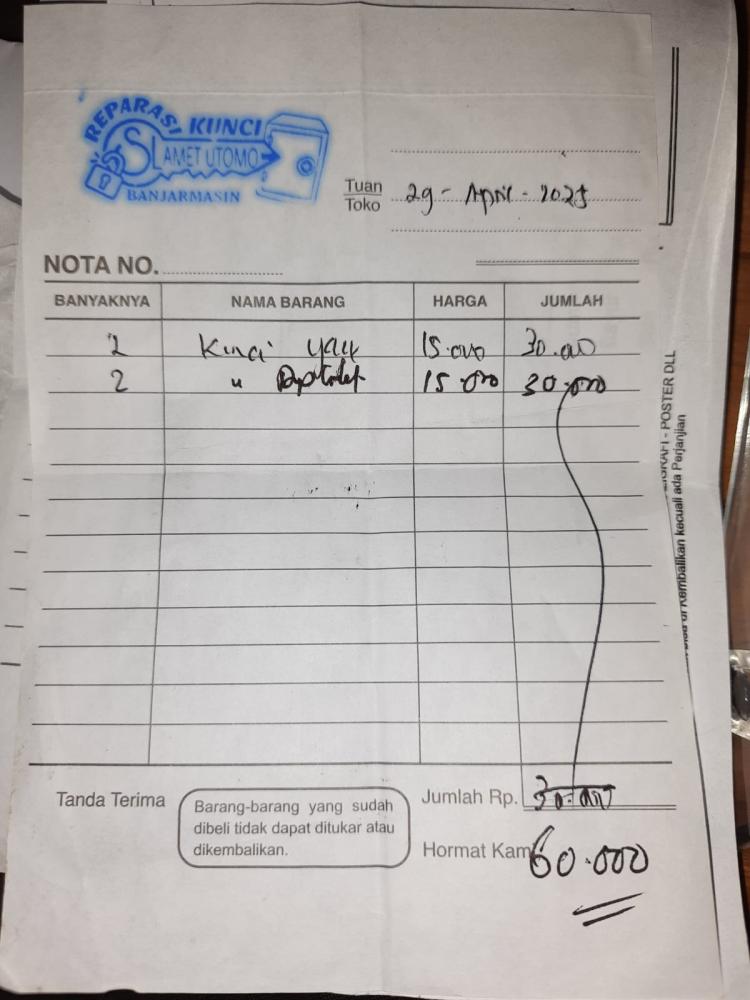 REPARASI KUNCI
SLAMET UTOMO
BANJARMASIN
Tuan
Toko 29 - April - 2025
NOTA NO.
BANYAKNYA NAMA BARANG HARGA JUMLAH
2 Kunci 15.000 30.000
2 " 15.000 30.000
Tanda Terima
Barang-barang yang sudah
dibeli tidak dapat ditukar atau
dikembalikan.
Jumlah Rp. 30.000
Hormat Kam
60.000
- POSTER DLL
kembalikan kecuali ada Perjanjian